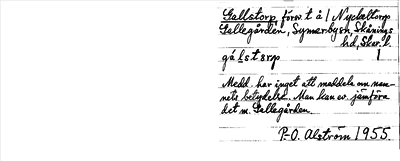 Gallstorp, förv. t. å 1 Nyckeltorp
Gallegården, Symarbysn, Skånings
hd, Skar. l.
gálstsrp 1
Medd. har inget att meddela om nam-
nets betydelse. Man kan ev. jämföra
det m. Gallegården.
P-O. Alström 1955.